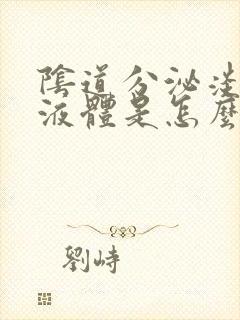 陰道分泌淡
液體是怎麼
劉峙